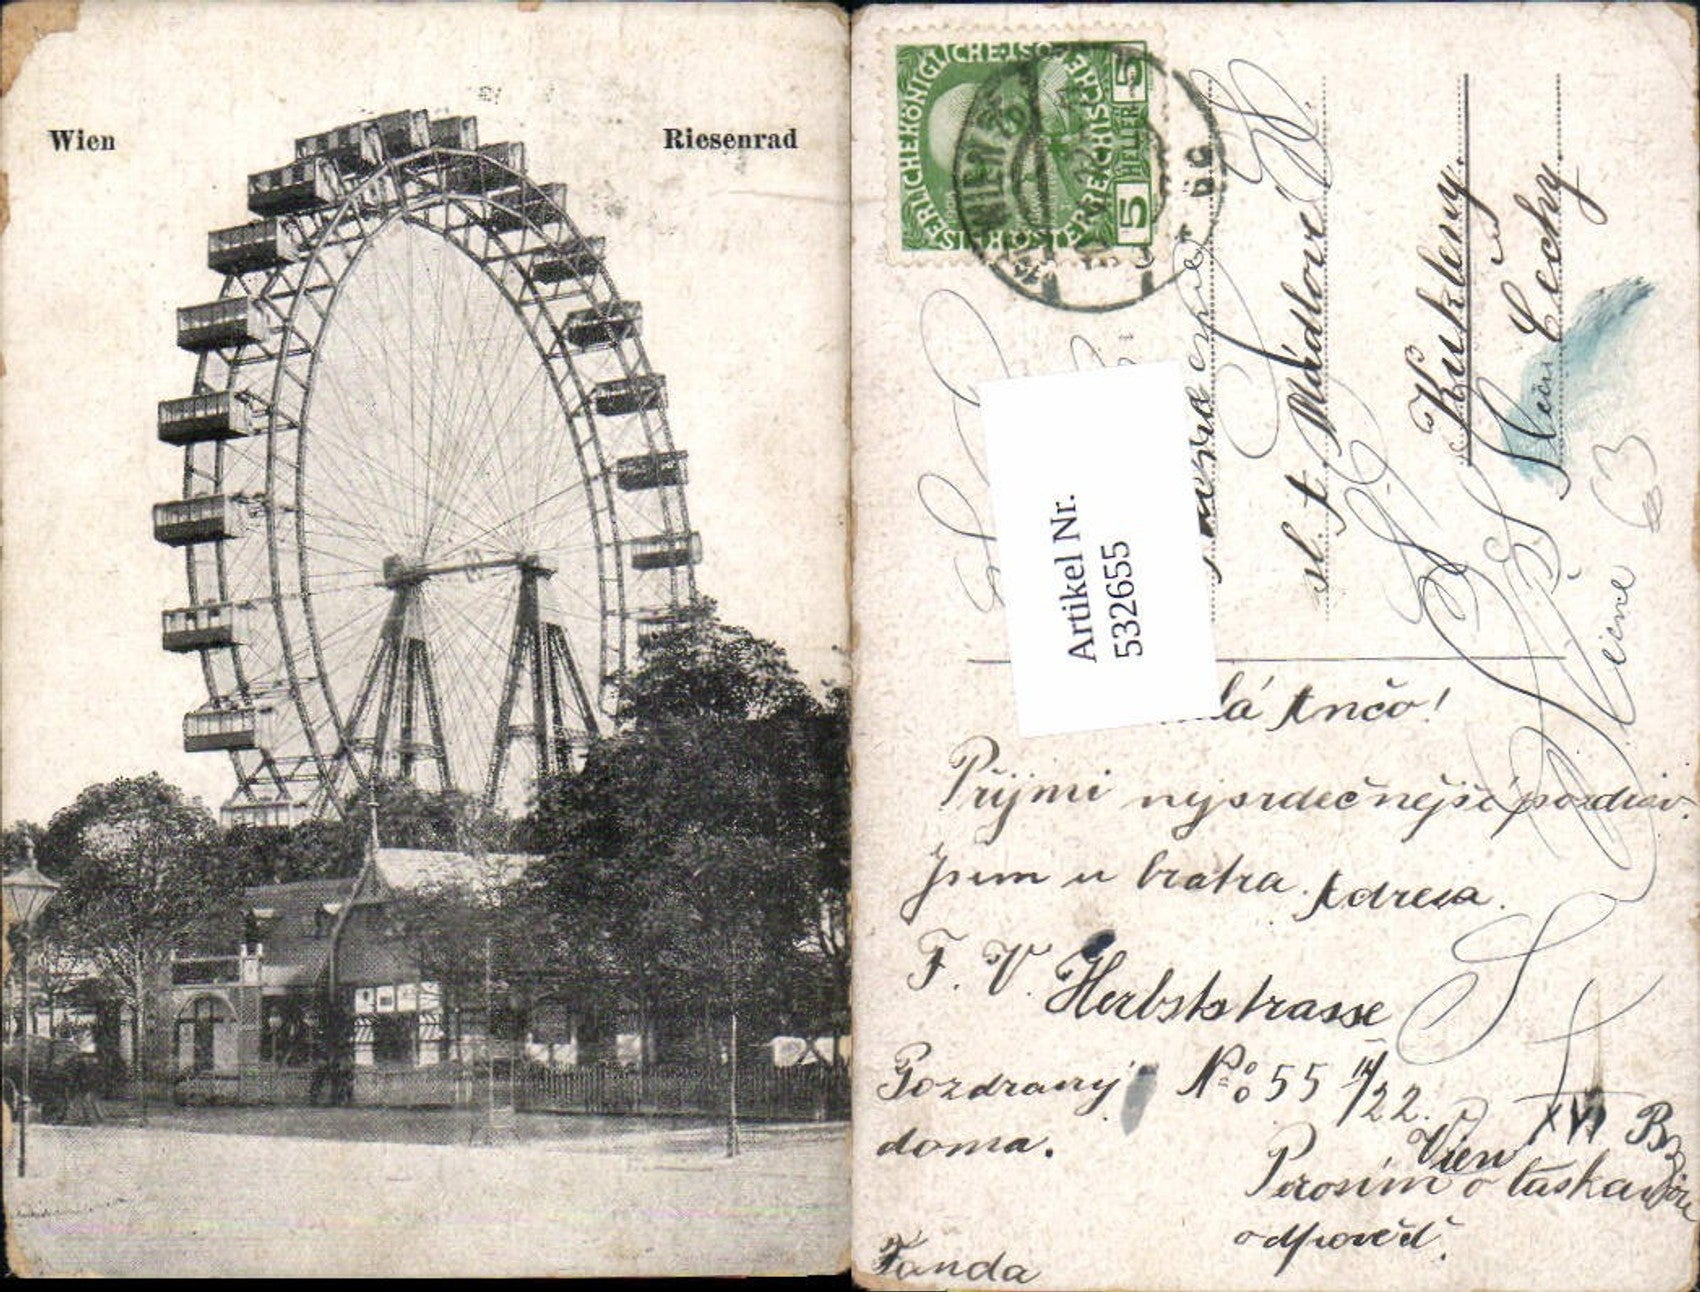 Wien
Riesenrad
KAISERLICHEKÖNIGLICHE
ÖSTERREICHISCHE
5 HELLER 5
WIEN
Artikel Nr.
532655
sl. t. Mádlové
Kukleny.
Čechy.
lá Ančo!
Přijmi nejsrdečnější pozdrav.
Jsem u bratra. Adresa.
F. V. Herbststrasse
Pozdravuj No 55 14/22.
doma. Wien XVI
Prosím o laskavou
odpověď.
Fanda